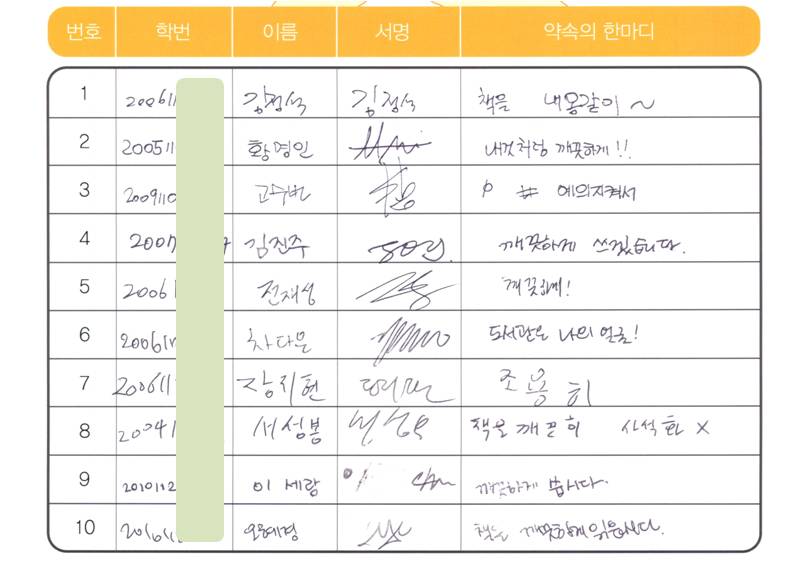 번호 학번 이름 서명 약속의 한마디
1 200611 김정식 김정식 책을 내몸같이 ~
2 200511 황명인 내것처럼 깨끗하게!!
3 2009110 예의지켜서
4 2007 김진주 깨끗하게 쓰겠습니다.
5 20061 전재성 깨끗하게!
6 200611 차다운 도서관은 나의 얼굴!
7 200611 장지현 조용히
8 20041 서성봉 책을 깨끈히 사석화 X
9 2010112 이세랑 깨끗하게 씁시다.
10 201611 책을 깨끗하게 읽읍시다.